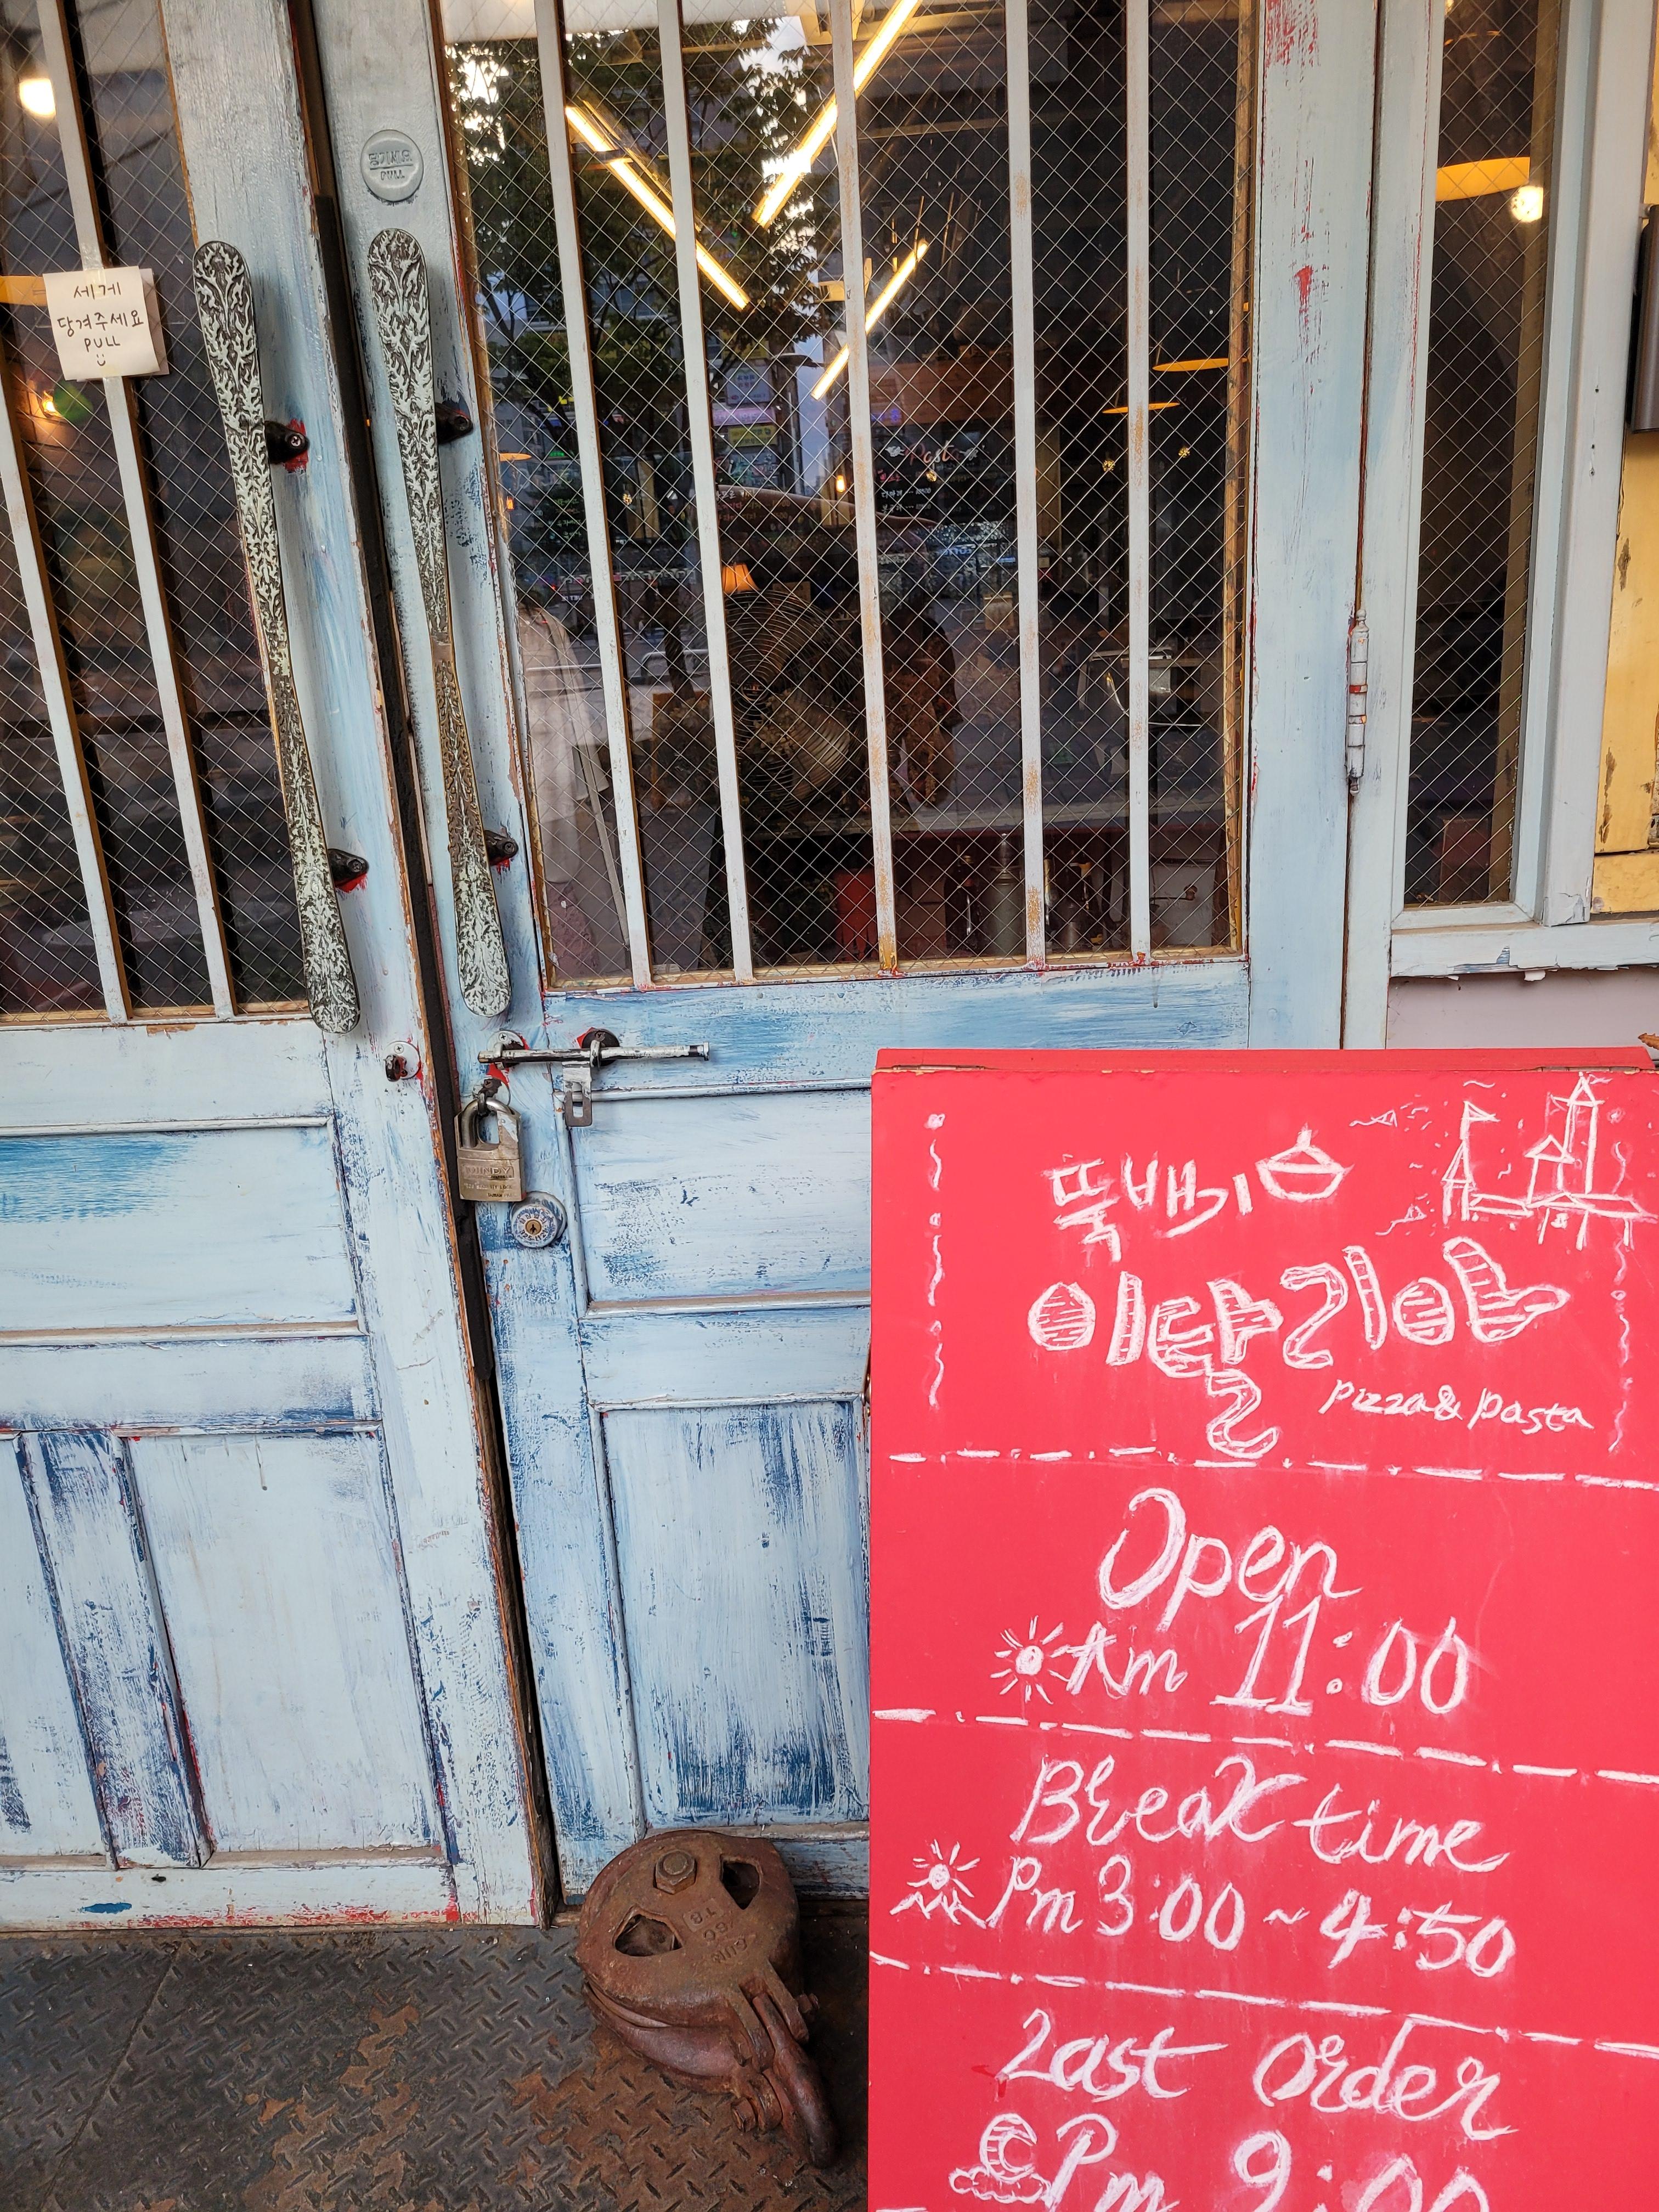 당기시오
PULL
세게
당겨주세요
PULL
Pasta
뚝배기
이탈리아
pizza & pasta
Open
Am 11:00
Break time
Pm 3:00 ~ 4:50
Last order
Pm 9:00